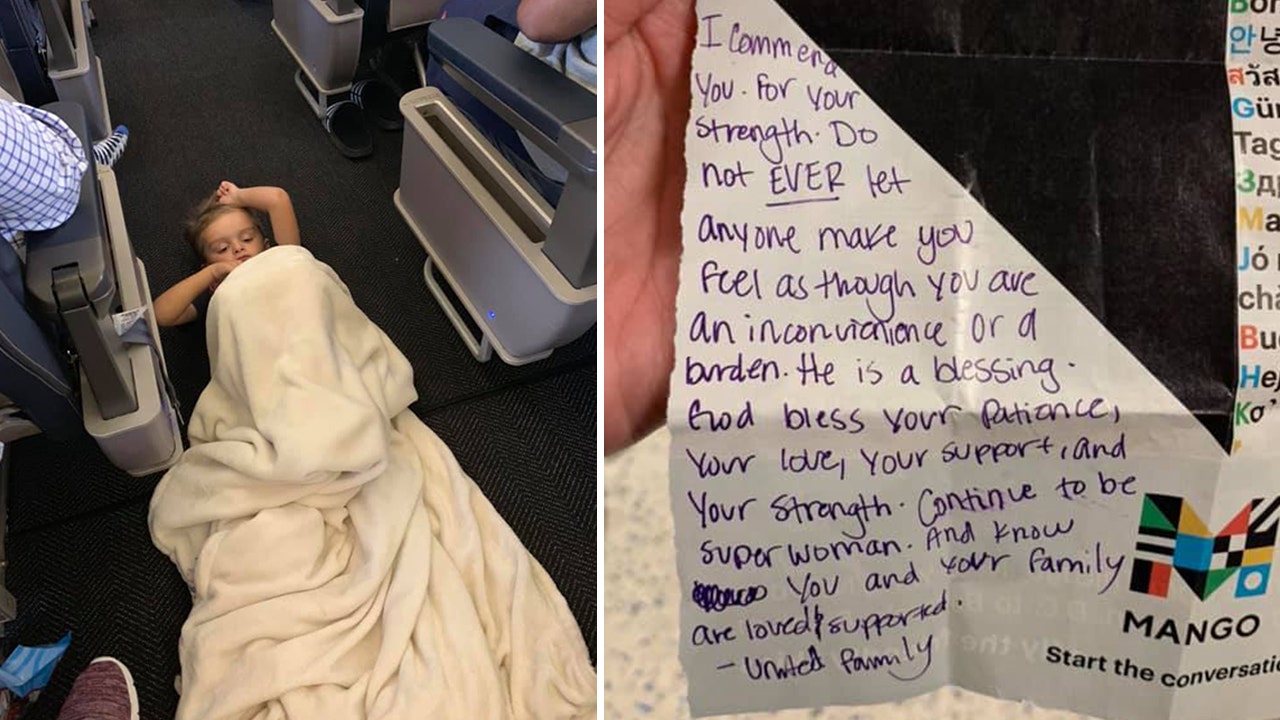 I commend
You. For your
strength. Do
not EVER let
anyone make you
feel as though you are
an inconvienience or a
burden. He is a blessing.
God bless your patience,
Your love, your support, and
Your strength. Continue to be
super woman. And know
You and your family
are loved & supported.
- United family
안녕
สวัส
Gü
Tag
Зд
Ma
Jó
cha
Bu
Hej
Κα
MANGO
Start the conversati